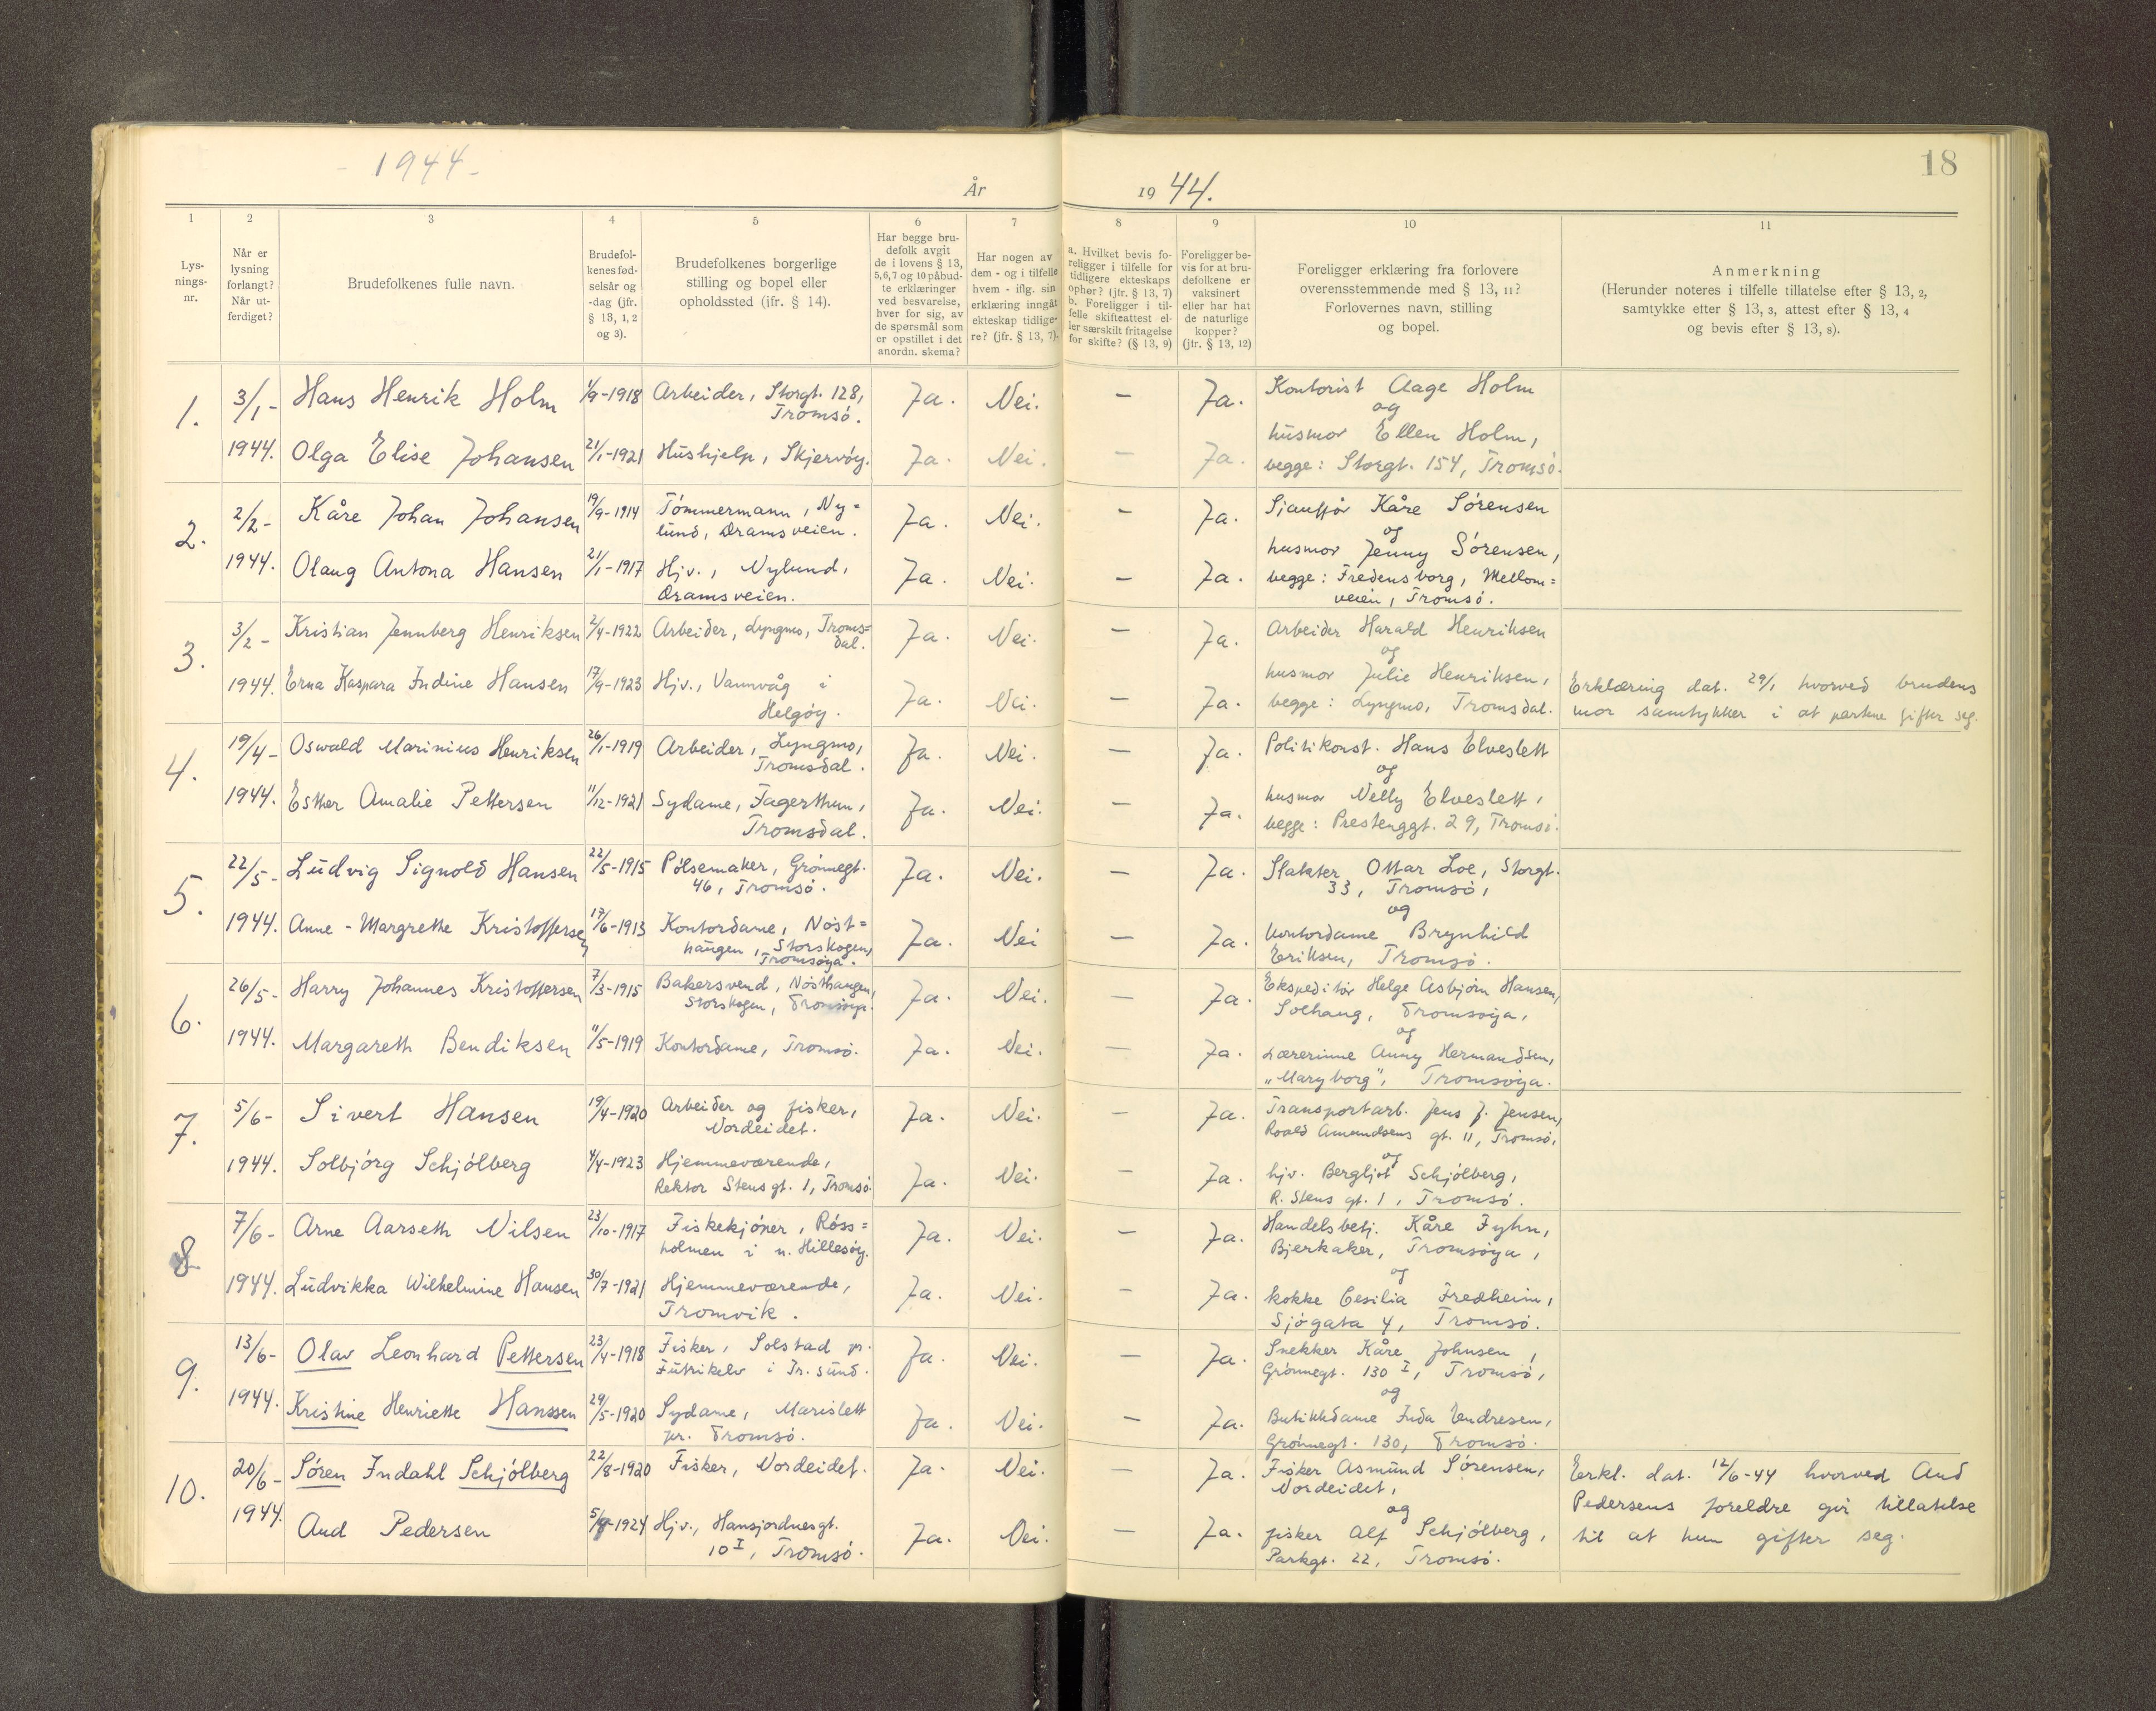 - 1944 -
18
År 1944.
1
2
3
4
5
6
7
8
9
10
11
Lys-
nings-
nr.
Når er
lysning
forlangt?
Når ut-
ferdiget?
Brudefolkenes fulle navn.
Brudefol-
kenes fød-
selsår og
-dag (jfr.
§ 13, 1, 2
og 3).
Brudefolkenes borgerlige
stilling og bopel eller
opholdssted (jfr. § 14).
Har begge bru-
defolk avgit
de i lovens § 13,
5,6,7 og 10 påbud-
te erklæringer
ved besvarelse,
hver for sig, av
de spørsmål som
er opstillet i det
anordn. skema?
Har nogen av
dem - og i tilfelle
hvem - iflg. sin
erklæring inngått
ekteskap tidlige-
re? (jfr. § 13, 7).
a. Hvilket bevis fo-
religger i tilfelle for
tidligere ekteskaps
ophør? (jfr. § 13, 7)
b. Foreligger i til-
felle skifteattest el-
ler særskilt fritagelse
for skifte? (§ 13, 9)
Foreligger be-
vis for at bru-
defolkene er
vaksinert
eller har hat
de naturlige
kopper?
(jfr. § 13, 12)
Foreligger erklæring fra forlovere
overensstemmende med § 13, 11?
Forlovernes navn, stilling
og bopel.
Anmerkning
(Herunder noteres i tilfelle tillatelse efter § 13, 2,
samtykke efter § 13, 3, attest efter § 13, 4
og bevis efter § 13, 8).
1.
3/1- Hans Henrik Holm 1/9-1918 Arbeider, Storgt. 128,
Tromsö.
Ja. Nei. — Ja.
Kontorist Aage Holm
og
1944. Olga Elise Johansen 21/1-1921 Hushjelp, Skjervöy. Ja. Nei. — Ja.
husmor Ellen Holm,
begge: Storgt. 154, Tromsö.
2.
2/2- Kåre Johan Johansen 19/9-1914 Tömmermann, Ny=
lund, Dramsveien.
Ja. Nei. — Ja.
Sjauffør Kåre Sörensen
og
1944. Olaug Antona Hansen 21/1-1917 Hjv., Nylund,
Dramsveien.
Ja. Nei. — Ja.
husmor Jenny Sörensen,
begge: Fredensborg, Mellom=
veien, Tromsö.
3.
3/2- Kristian Jennberg Henriksen 2/4-1922 Arbeider, Lyngmo, Troms=
dal.
Ja. Nei. — Ja.
Arbeider Harald Henriksen
og
1944. Erna Kaspara Indine Hansen 17/9-1923 Hjv., Vannvåg i
Helgöy.
Ja. Nei. — Ja.
husmor Julie Henriksen,
begge: Lyngmo, Tromsdal.
Erklæring dat. 29/1 hvorved brudens
mor samtykker i at partene gifter seg.
4.
19/4- Oswald Marinius Henriksen 26/1-1919 Arbeider, Lyngmo,
Tromsdal.
Ja. Nei. — Ja.
Politikonst. Hans Elveslett
og
1944. Esther Amalie Pettersen 11/12-1921 Sydame, Fagerthun,
Tromsdal.
Ja. Nei. — Ja.
husmor Nelly Elveslett,
begge: Prestenggt. 29, Tromsö.
5.
22/5- Ludvig Signold Hansen 22/5-1915 Pölsemaker, Grönnegt.
46, Tromsö.
Ja. Nei. — Ja.
Slakter Ottar Loe, Storgt.
33, Tromsö,
og
1944. Anne-Margrethe Kristoffersen 17/6-1913 Kontordame, Nöst=
haugen, Storskogen,
Tromsöya.
Ja. Nei — Ja.
kontordame Brynhild
Eriksen, Tromsö.
6.
26/5- Harry Johannes Kristoffersen 7/3-1915 Bakersvend, Nösthaugen,
Storskogen, Tromsöya.
Ja. Nei. — Ja.
Ekspeditör Helge Asbjörn Hansen,
Solhaug, Tromsöya,
og
1944. Margareth Bendiksen 11/5-1919 Kontordame, Tromsö. Ja. Nei. — Ja.
Lærerinne Anny Hermandsen,
„Maryborg", Tromsöya.
7.
5/6- Sivert Hansen 19/4-1920 Arbeider og fisker,
Nordeidet.
Ja. Nei. — Ja.
Transportarb. Jens J. Jensen,
Roald Amundsens gt. 11, Tromsö,
og
1944. Solbjörg Schjölberg 4/4-1923 Hjemmeværende,
Rektor Stens gt. 1, Tromsö.
Ja. Nei. — Ja.
hjv. Bergljot Schjölberg,
R. Stens gt. 1, Tromsö.
8
7/6- Arne Aarseth Nilsen 23/10-1917 Fiskekjöper, Röss=
holmen i n. Hillesöy.
Ja. Nei. — Ja.
Handelsbetj. Kåre Fyhn,
Bjerkaker, Tromsöya,
og
1944. Ludvikka Wilhelmine Hansen 30/7-1921 Hjemmeværende,
Tromvik.
Ja. Nei. — Ja.
kokke Cesilia Fredheim,
Sjögata 4, Tromsö.
9.
13/6- Olav Leonhard Pettersen 23/4-1918 Fisker, Solstad pr.
Futrikelv i Tr. sund.
Ja. Nei. — Ja.
Snekker Kåre Johnsen,
Grönnegt. 130 I, Tromsö,
og
1944. Kristine Henriette Hanssen 29/5-1920 Sydame, Marislett
pr. Tromsö.
Ja. Nei. — Ja.
Butikkdame Inda Endresen,
Grönnegt. 130, Tromsö.
10.
20/6- Sören Indahl Schjölberg 22/8-1920 Fisker, Nordeidet. Ja. Nei. — Ja.
Fisker Asmund Sörensen,
Nordeidet,
og
1944. Aud Pedersen 1924 Hjv., Hansjordnesgt.
10 I, Tromsö.
Ja. Nei. — Ja.
fisker Alf Schjölberg,
Parkgt. 22, Tromsö.
Erkl. dat. 12/6-44 hvorved Aud
Pedersens foreldre gir tillatelse
til at hun gifter seg.